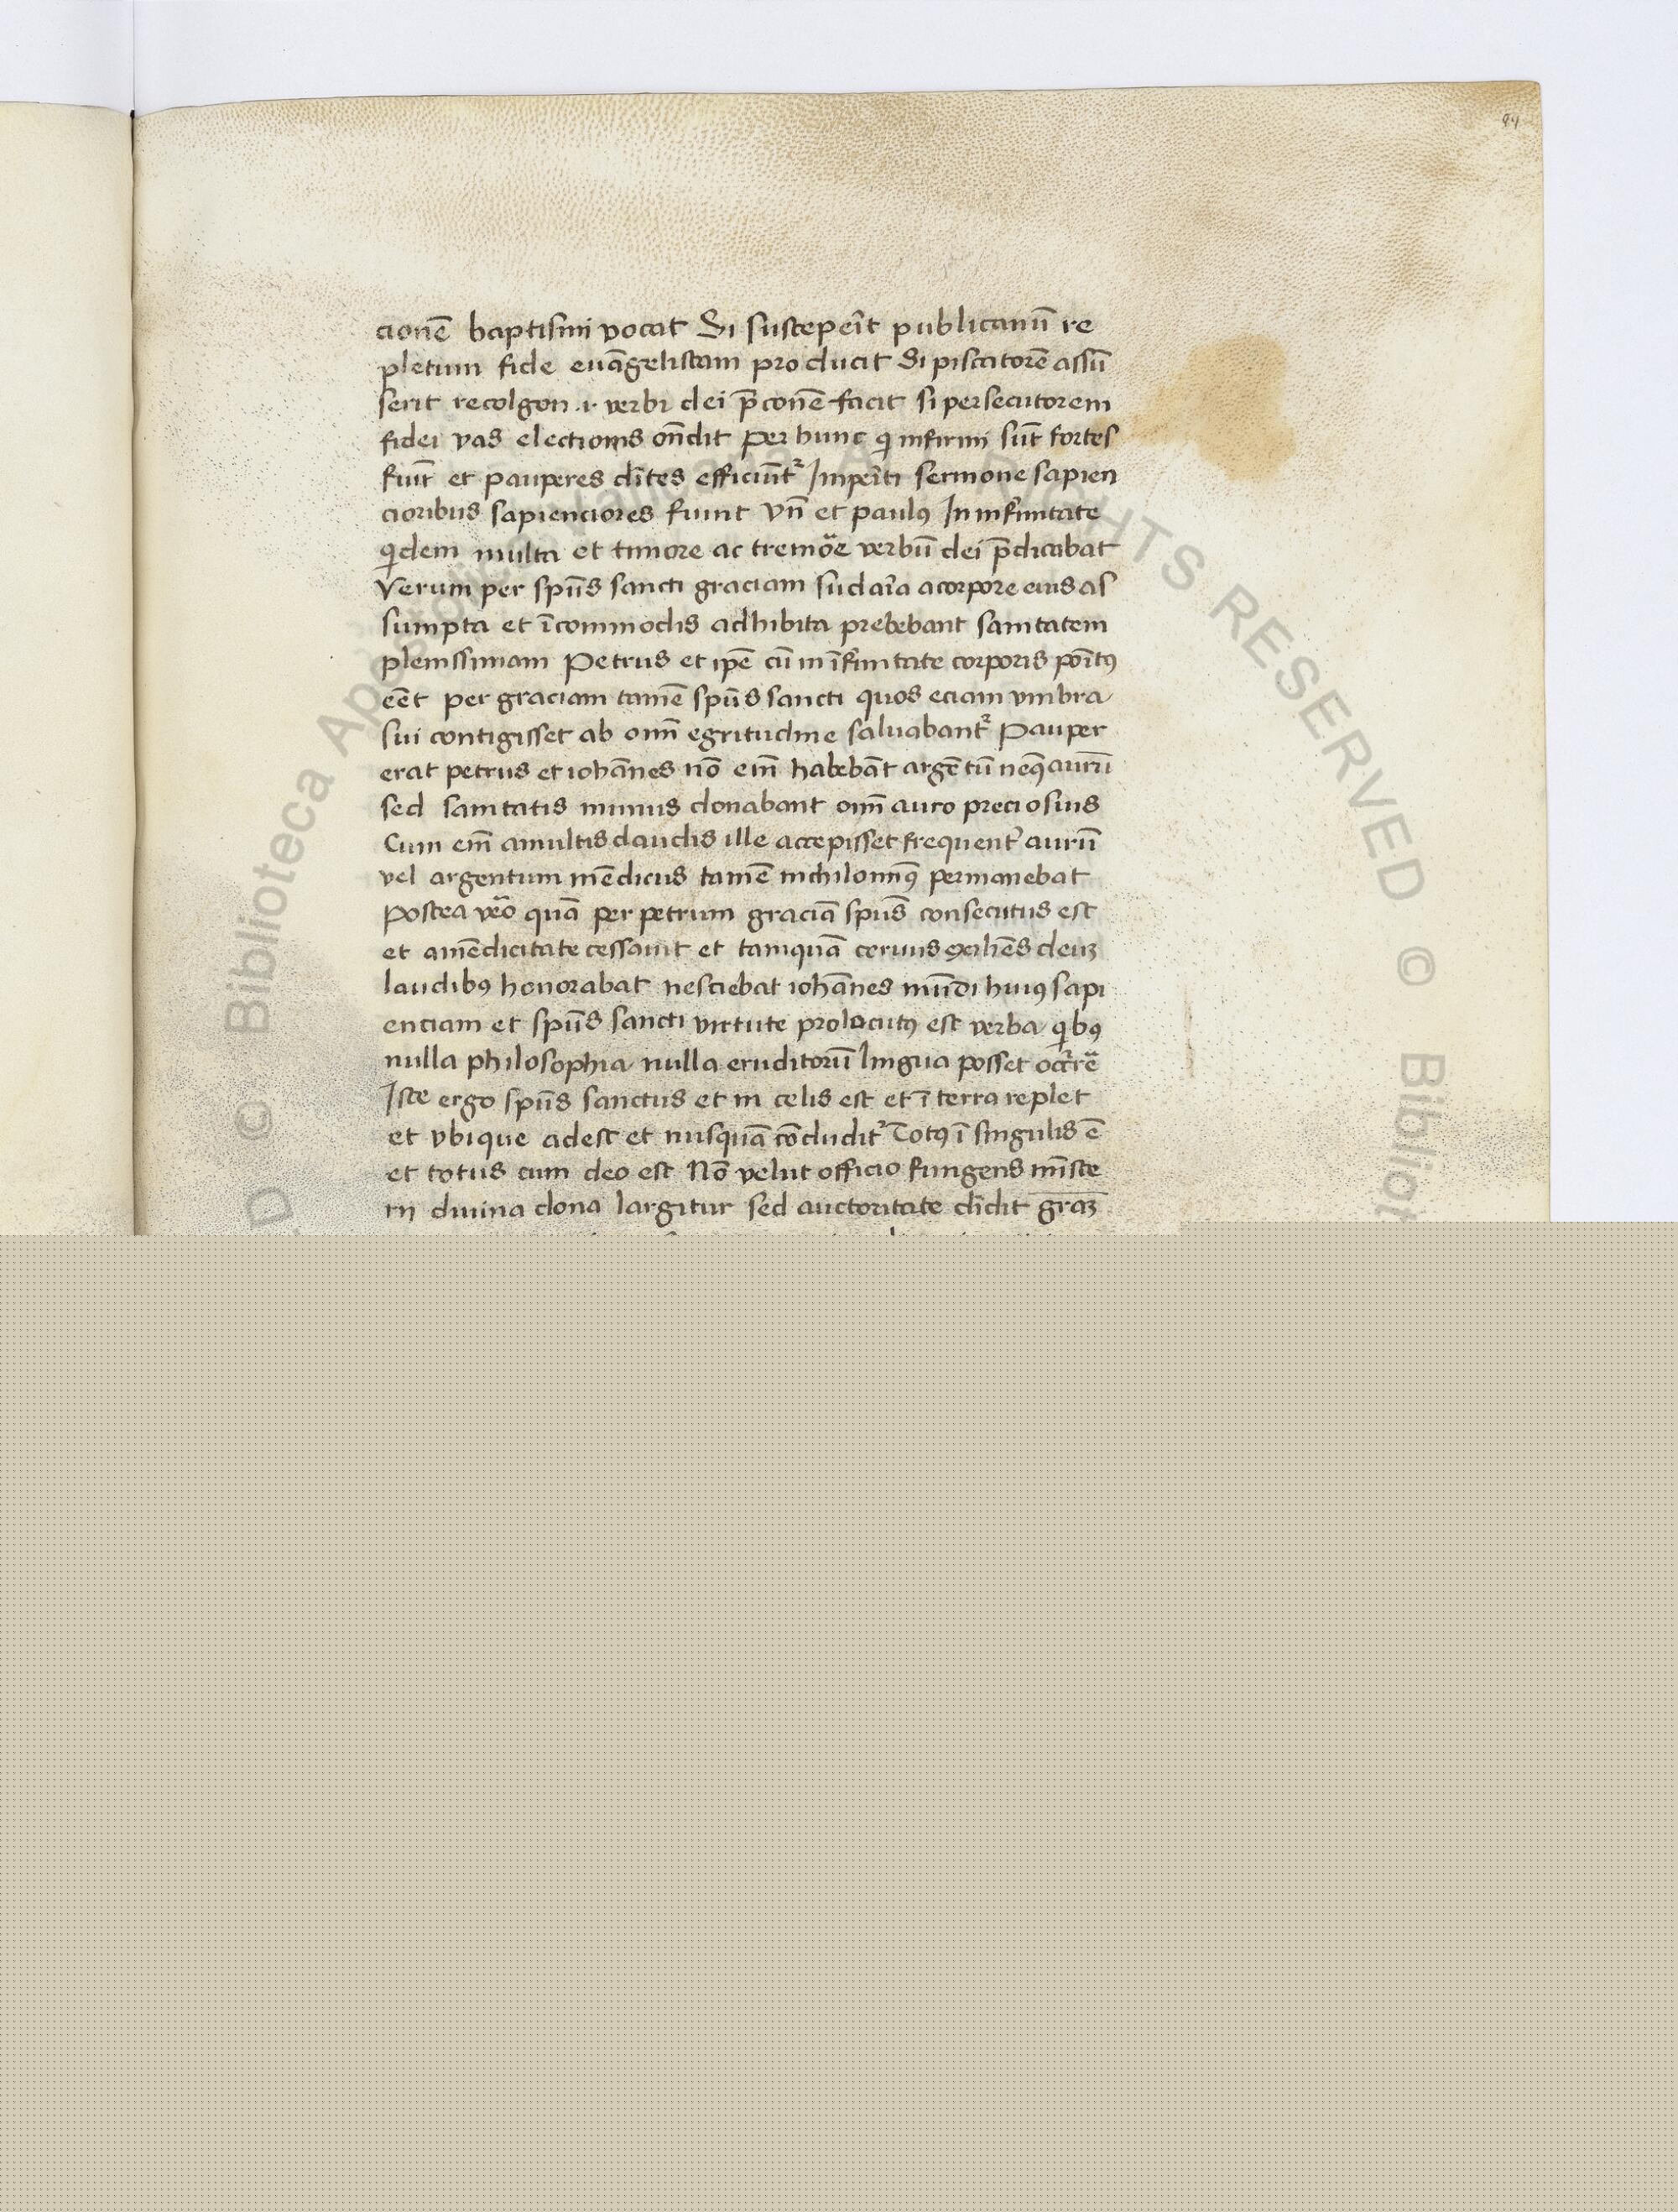 94
cionē baptismi vocat Si susceperīt publicanū re
pletum fide euāgelistam producit Si piscatorē assū
serit recolgon .i. verbi dei p̄conē facit si persecutorem
fidei vas electionis ōndit per hunc qi infirmi sūt fortes
fiūt et pauperes dītes efficiūtr Imperīti sermone sapien
cioribus sapienciores fiunt Vn̄ et paulꝰ In infirmitate
qidem multa et timore ac tremore verbū dei p̄dicabat
Verum per spūs sancti graciam sudaria a corpore eius as
sumpta et īcommodis adhibita prebebant sanitatem
plenissimam Petrus et ipē cū in īfirmitate corporis poītꝰ
eēt per graciam tamē spūs sancti quos eciam vmbra
sui contigisset ab omī egritudine saluabantr Pauper
erat petrus et iohānes nō em̄ habebāt argētū neqꝫ aurū
sed sanitatis munus donabant omī auro preciosius
Cum em̄ a multis claudis ille accepisset frequentr aurū
vel argentum mēdicus tamē nichilominꝰ permanebat
Postea vēo quā per petrum graciā spūs consecutus est
et a mēdicitate cessauit et tamquā ceruus exiliēs deuꝫ
laudibꝰ honorabat nesciebat iohānes mūdi huiꝰ sapi
enciam et spūs sancti virtute prolocutꝰ est verba qibꝰ
nulla philosophia nulla eruditorū lingua posset occrrē
Iste ergo spūs sanctus et in celis est et ī terra replet
et vbique adest et nusquā cōcluditr Totꝰ ī singulis ē
et totus cum deo est Nō velut officio fungens mīste
rij diuina dona largitur sed auctoritate dīdit graꝫ
© Biblioteca Apostolica Vaticana
ALL RIGHTS RESERVED © Bibliot